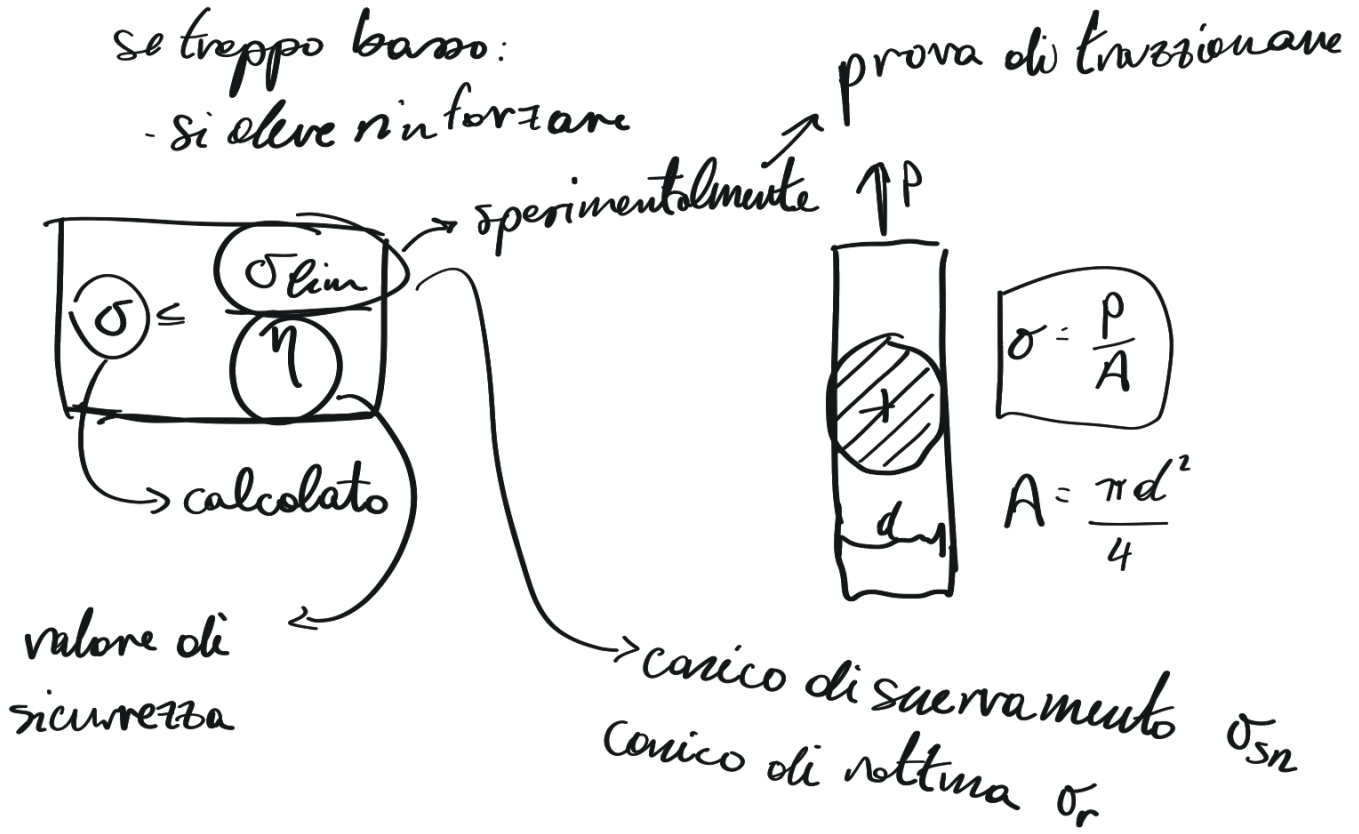 se troppo basso:
- si deve rinforzare
prova di trazzionane
sperimentalmente
P
σ ≤ σlim / η
σ = P / A
calcolato
d
A = πd² / 4
valore di
sicurrezza
carico di snervamento σsn
carico di rottura σr